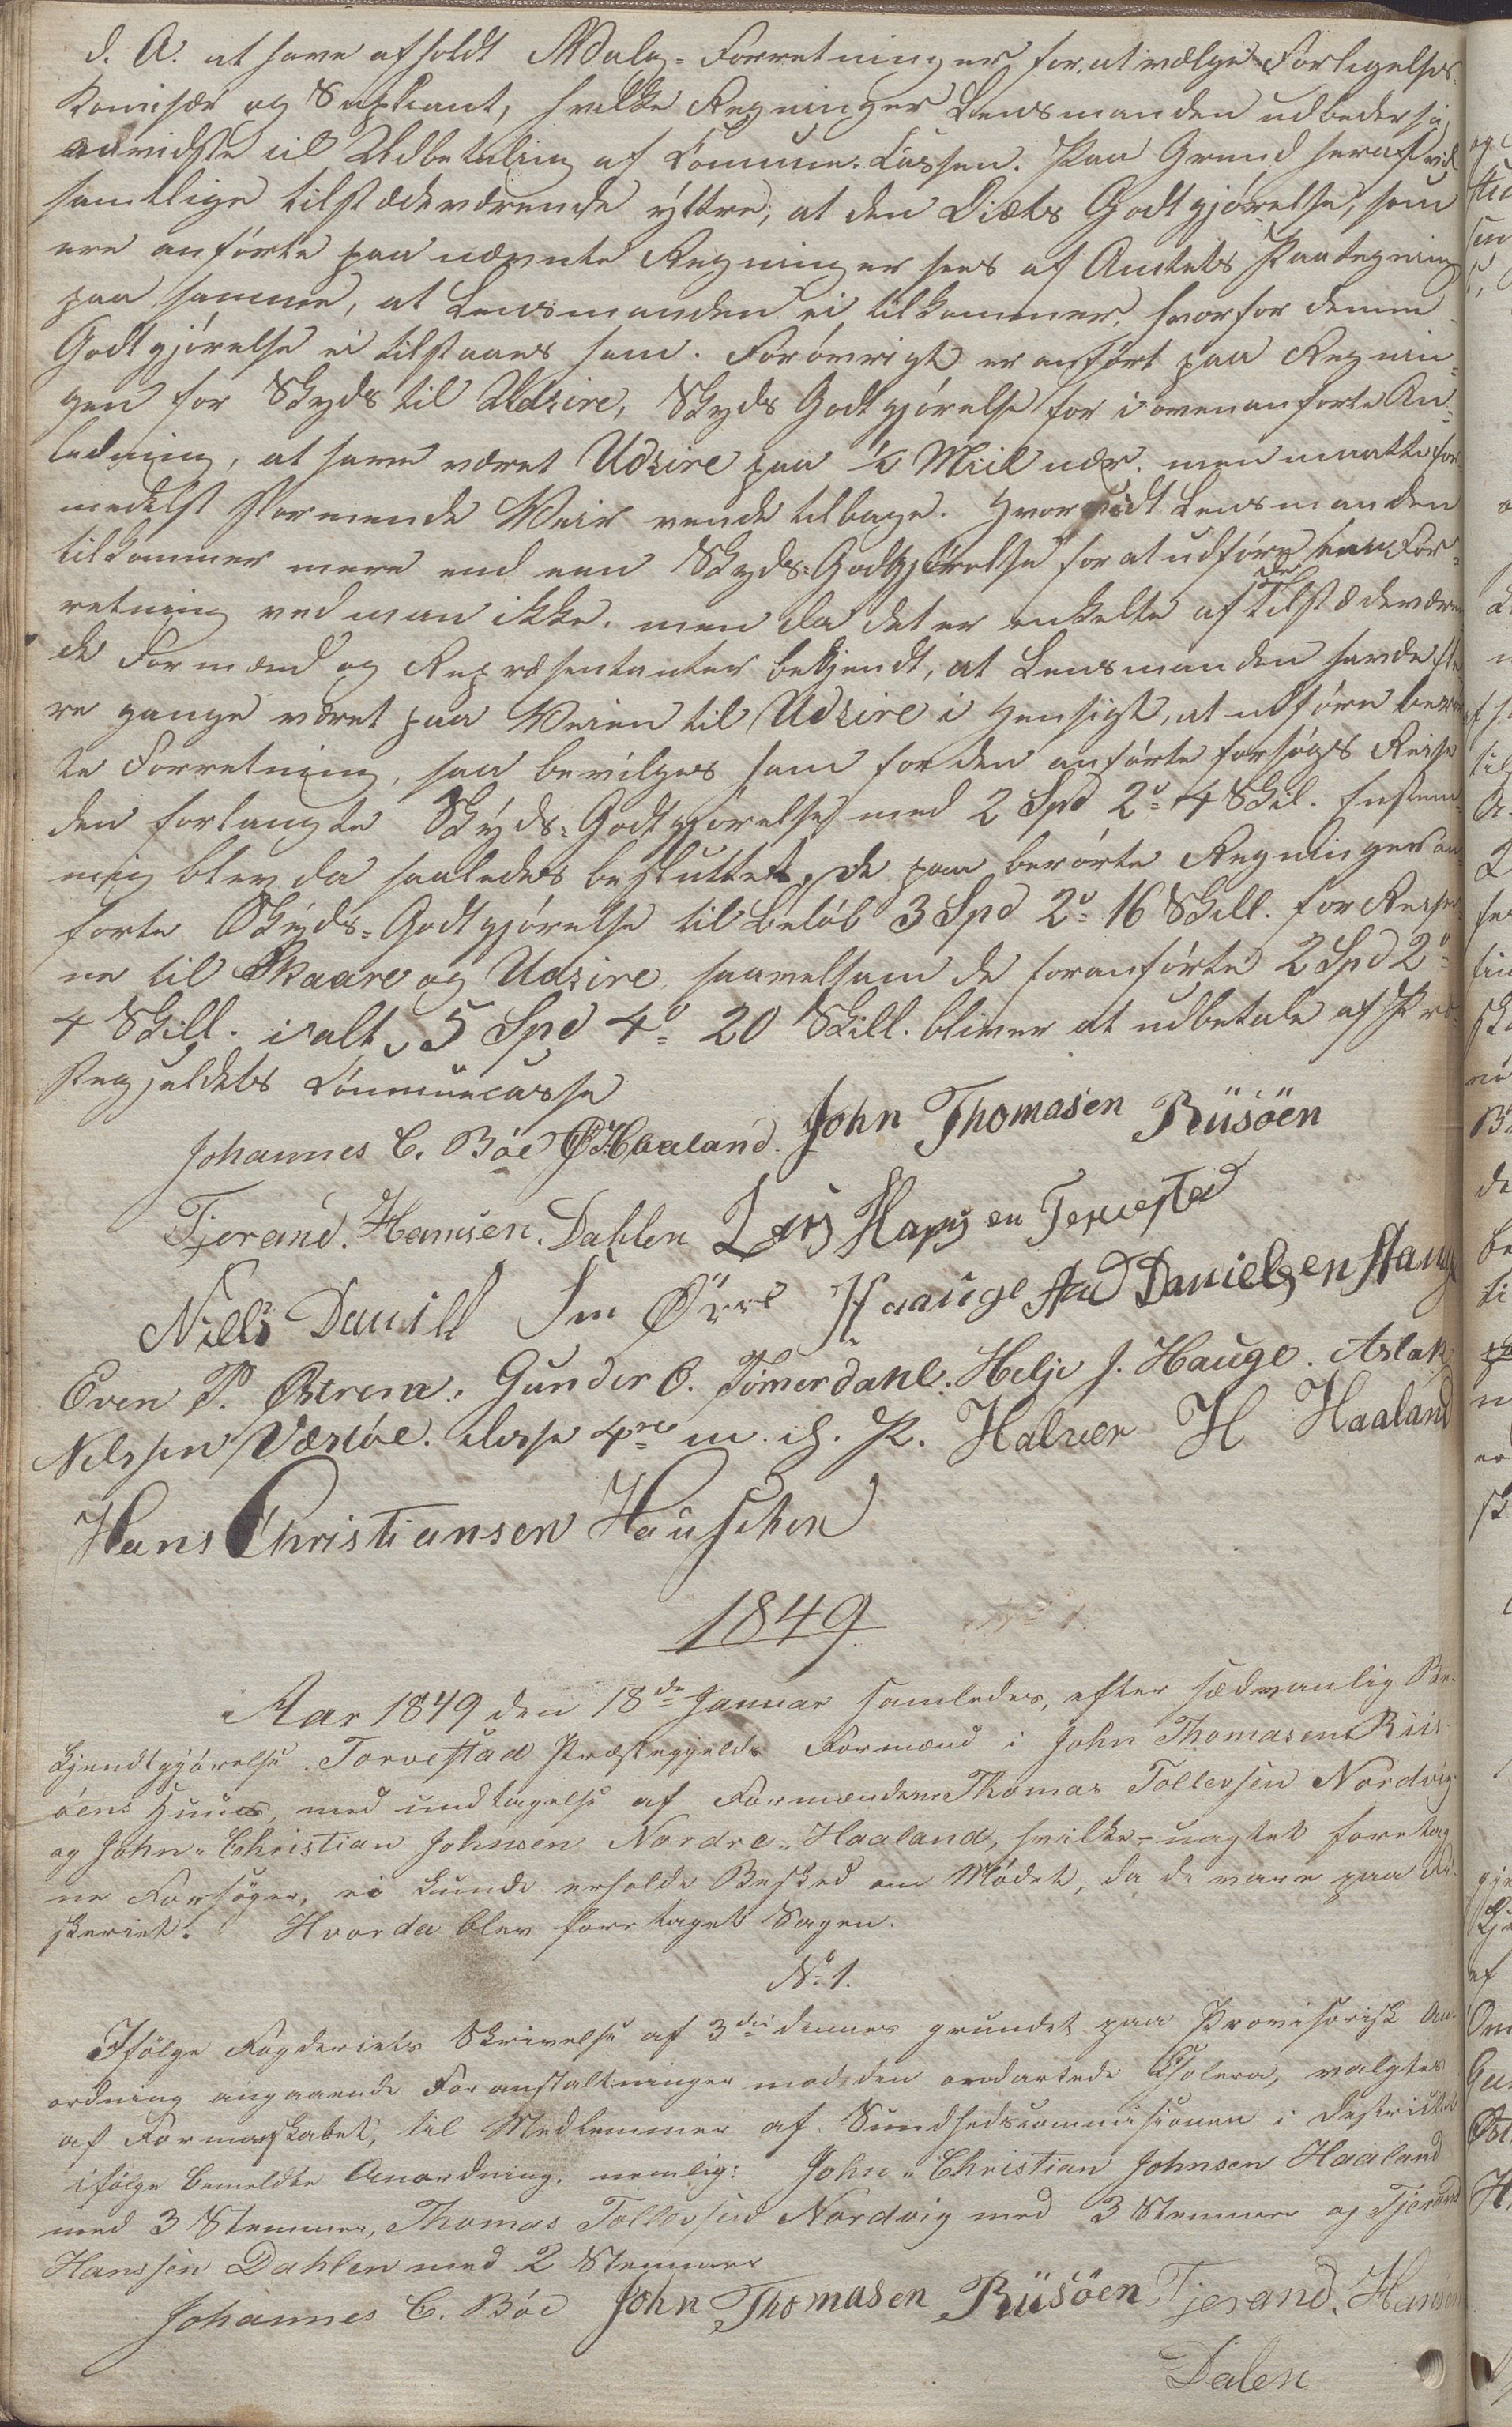 d. A. at have afholdt Valg-Forretninger for at vælge Forligelses-
Komissær og Supleant, hvilke Regninger Lensmanden udbeder sig
anviidste til Udbetaling af Commune-Cassen. Paa Grund heraf vil
samtlige tilstædeværende ÿttre, at den Diæts Godtgjørelse, som
ere anførte paa nævnte Regninger sees af Amtets Paategning
paa samme, at Lensmanden ei tilkommer, hvorfor denne
Godtgjørelse ei tilstaaes ham. Forøvrigt er anført paa Regnin-
gen for Skyds til Udsire, Skyds Godtgjørelse for i ovenanførte An-
ledning, at have været Udsire paa ½ Miil nær, men maatte for-
medelst stormende Veir vende tilbage. Hvorvidt Lensmanden
tilkommer mere end een Skyds-Godtgjørelse for at udføre een For-
retning ved man ikke, men da det er enkelte af de Tilstædeværen-
de Formænd og Repræsentanter bekjendt, at Lensmanden havde fle-
re gange været paa Veien til Udsire i Hensigt, at udføre berør-
te Forretning, saa bevilges ham for den anførte forsøgs Reise
den forlangte Skÿds-Godtgjørelse med 2 Spd 2o 4 Skil. Enstem-
mig blev da saaledes besluttet, De paa berørte Regninger an-
førte Skÿds-Godtgjørelse til Beløb 3 Spd 2o 16 Skill. for Reiser-
ne til Skaare og Udsire, saavelsom de foranførte 2 Spd 2o
4 Skill. ialt 5 Spd 4o 20 Skill. bliver at udbetale af Præ-
stegjeldets Communecasse
Johannes C. Bøe O H Haaland. John Thomasen Riisöen
Tjerand. Hansen. Dahlen Lars Hansen Torvestad
Niels Daniel Haauge Danielsen Hauge
Even P. Østrem. Gunder O. Tømerdahl. Helje J. Hauge. Aslak
NilssenVærsøe. disse 4re m. ih. P. Halver H Haaland
Hans Christiansen Hauschen
1849.
No 1.
Aar 1849 den 18de Januar samledes, efter sædvanlig Be-
kjendtgjørelse Torvestad Præstegjelds Formænd i John Thomasen Riis-
öens Huus, med undtagelse af Formændene Thomas Tollevsen Nordvig
og John Christian Johnsen Nordre Haaland, hvilke uagtet foretag-
ne Forsøger, ei kunde erholde Besked om Mødet, da de vare paa Fi-
skeriet. Hvorda blev foretaget Sagen.
No 1.
Ifølge Fogderiets Skrivelse af 3die dennes grundet paa Provisorisk An-
ordning angaaende Foranstaltninger mod den ondartede Cholera, valgtes
af Formandskabet, til Medlemmer af Sundhedscommisionen i Destrictet
ifølge bemeldte Anordning, nemlig: John Christian Johnsen Haaland
med 3 Stemmer, Thomas Tollevsen Nordvig med 3 Stemmer og Tjerand
Hanssen Dahlen med 2 Stemmer
Johannes C. Bøe John Thomasen Riisöen Tjerand. Hansen
Dalen